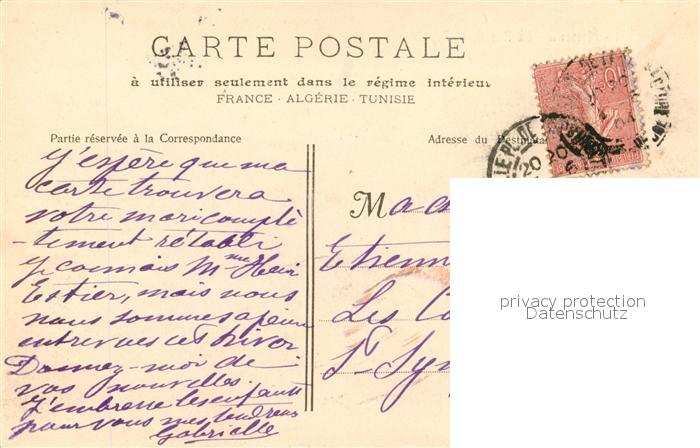 CARTE POSTALE
à utiliser seulement dans le régime intérieur
FRANCE - ALGÉRIE - TUNISIE
Partie réservée à la Correspondance
Adresse du Destinata
J'espère que ma
carte trouvera
votre mari complè
-tement rétabli
Je connais Mme Henri
Estier, mais nous
nous sommes à peine
entrevues cet hiver.
Donnez-moi de
vos nouvelles.
J'embrasse les enfants
pour vous mes tendresses
Gabrielle
Mada
Etienn
Les Co
St Sym
privacy protection
Datenschutz